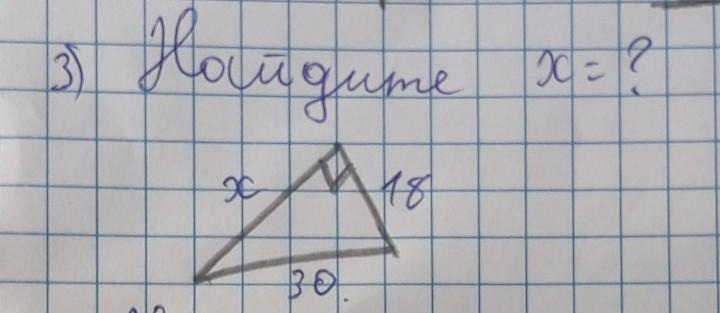 3) Найдите x = ?
x 18
30.